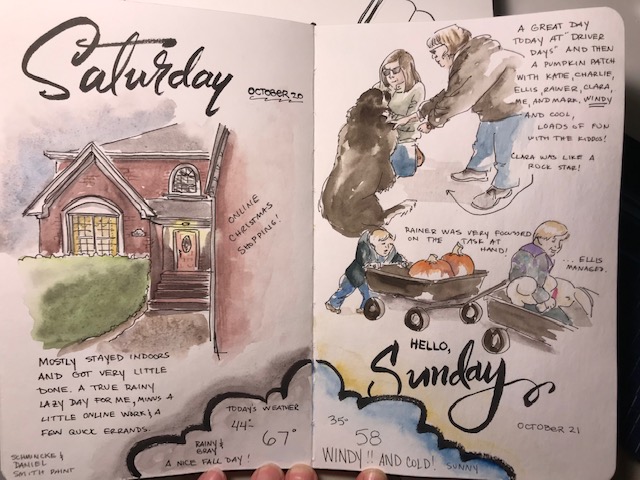 Saturday
OCTOBER 20
ONLINE
CHRISTMAS
SHOPPING!
MOSTLY STAYED INDOORS
AND GOT VERY LITTLE
DONE. A TRUE RAINY
LAZY DAY FOR ME, MINUS A
LITTLE ONLINE WORK & A
FEW QUICK ERRANDS.
SCHMINCKE &
DANIEL
SMITH PAINT
TODAY'S WEATHER
44°-
67°
RAINY &
GRAY
A NICE FALL DAY!
A GREAT DAY
TODAY AT "DRIVER
DAYS" AND THEN
A PUMPKIN PATCH
WITH KATIE, CHARLIE,
ELLIS, RAINER, CLARA,
ME, AND MARK. WINDY
AND COOL,
LOADS OF FUN
WITH THE KIDDOS!
CLARA WAS LIKE A
ROCK STAR!
RAINER WAS VERY FOCUSED
ON THE TASK AT
HAND!
... ELLIS
MANAGED.
HELLO,
Sunday
OCTOBER 21
35°-
58
WINDY!! AND COLD! SUNNY